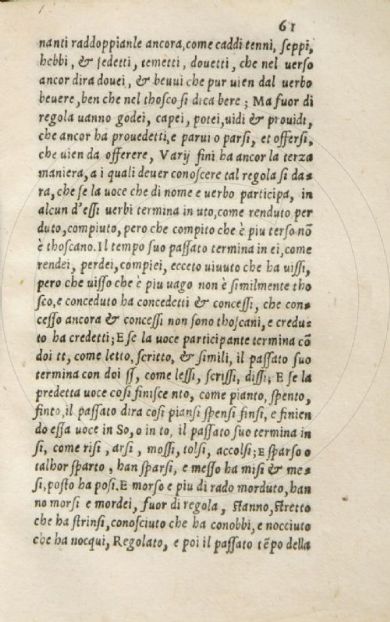 61
nanti raddoppianle ancora, come caddi tenni, seppi,
hebbi, & sedetti, temetti, douetti, che nel uerso
ancor dira douei, & beuui che pur uien dal uerbo
beuere, ben che nel thosco si dica bere; Ma fuor di
regola uanno godei, capei, potei, uidi & prouidi,
che ancor ha prouedetti, e parui o parsi, et offersi,
che uien da offerere, Varij fini ha ancor la terza
maniera, a i quali deuer conoscere tal regola si da=
ra, che se la uoce che di nome e uerbo participa, in
alcun d'essi uerbi termina in uto, come renduto per
duto, compiuto, pero che compito che è piu terso nõ
è thoscano. Il tempo suo passato termina in ei, come
rendei, perdei, compiei, ecceto uiuuto che ha uissi,
pero che uisso che è piu uago non è similmente tho
sco, e conceduto ha concedetti & concessi, che con=
cesso ancora & concessi non sono thoscani, e credu=
to ha credetti; E se la uoce participante termina cõ
doi tt, come letto, scritto, & simili, il passato suo
termina con doi ss, come lessi, scrissi, dissi; E se la
predetta uoce cosi finisce nto, come pianto, spento,
finto, il passato dira cosi piansi spensi finsi, e finien
do essa uoce in So, o in to, il passato suo termina in
si, come risi, arsi, mossi, tolsi, accolsi; E sparso o
talhor sparto, han sparsi, e messo ha misi & me=
si, posto ha posi. E morso e piu di rado morduto, han
no morsi e mordei, fuor di regola, stanno, stretto
che ha strinsi, conosciuto che ha conobbi, e nocciuto
che ha nocqui, Regolato, e poi il passato tẽpo della